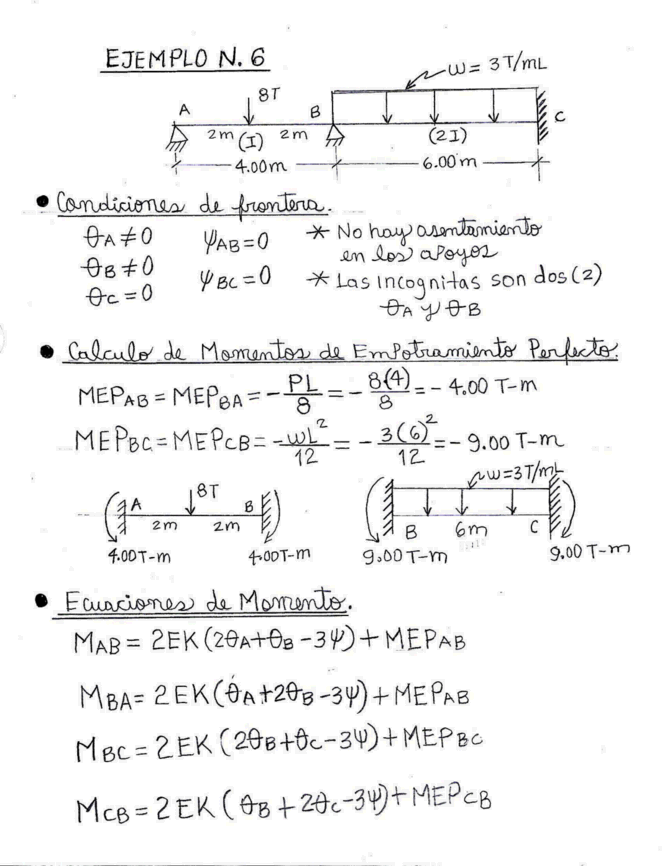 EJEMPLO N. 6
ω = 3 T/mL
A 8T B C
2m (I) 2m (2I)
4.00m 6.00m
• Condiciones de frontera.
θA ≠ 0 ψAB = 0 * No hay asentamiento
en los apoyos
θB ≠ 0 ψBC = 0 * Las incognitas son dos (2)
θC = 0 θA y θB
• Calculo de Momentos de Empotramiento Perfecto.
MEPAB = MEPBA = - PL/8 = - 8(4)/8 = - 4.00 T-m
MEPBC = MEPCB = -ωL²/12 = - 3(6)²/12 = - 9.00 T-m
A 8T B
2m 2m
4.00T-m 4.00T-m
ω=3T/mL
B 6m C
9.00T-m 9.00 T-m
• Ecuaciones de Momento.
MAB = 2EK(2θA+θB-3ψ)+MEPAB
MBA = 2EK(θA+2θB-3ψ)+MEPAB
MBC = 2EK(2θB+θC-3ψ)+MEPBC
MCB = 2EK(θB+2θC-3ψ)+MEPCB